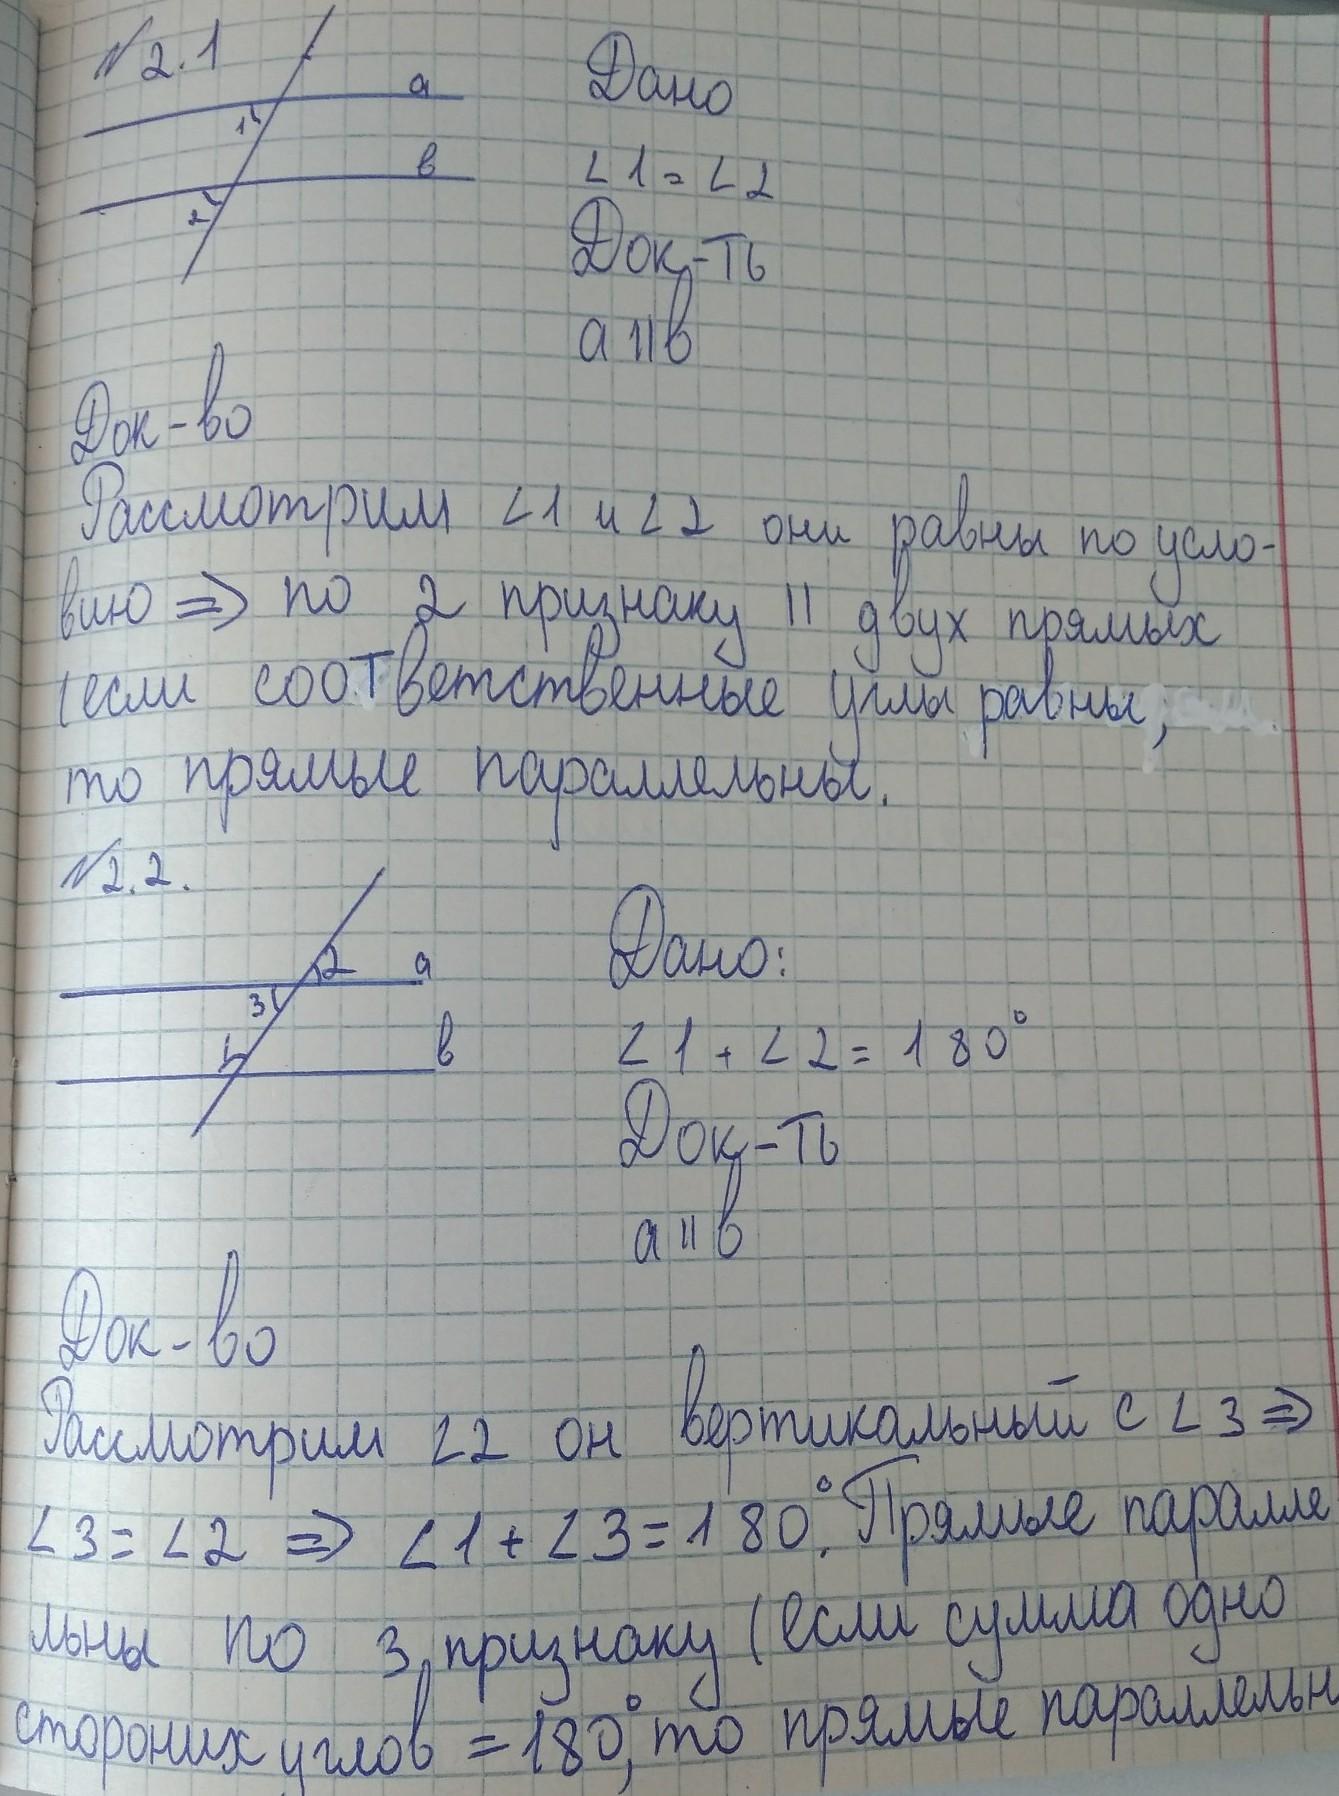 №2.1
Дано
a
1
∠1=∠2
в
2
Док-ть
a॥в
Док-во
Рассмотрим ∠1 и ∠2 они равны по усло-
вию => по 2 признаку || двух прямых
(если соответственные углы равны,
то прямые параллельны.
№2.2.
Дано:
2 a
3
∠1+∠2=180°
1 в
Док-ть
a॥в
Док-во
Рассмотрим ∠2 он вертикальный с ∠3 =>
∠3=∠2 => ∠1+∠3=180°. Прямые паралле
льны по 3 признаку (если сумма одно
стороних углов =180°, то прямые параллельн